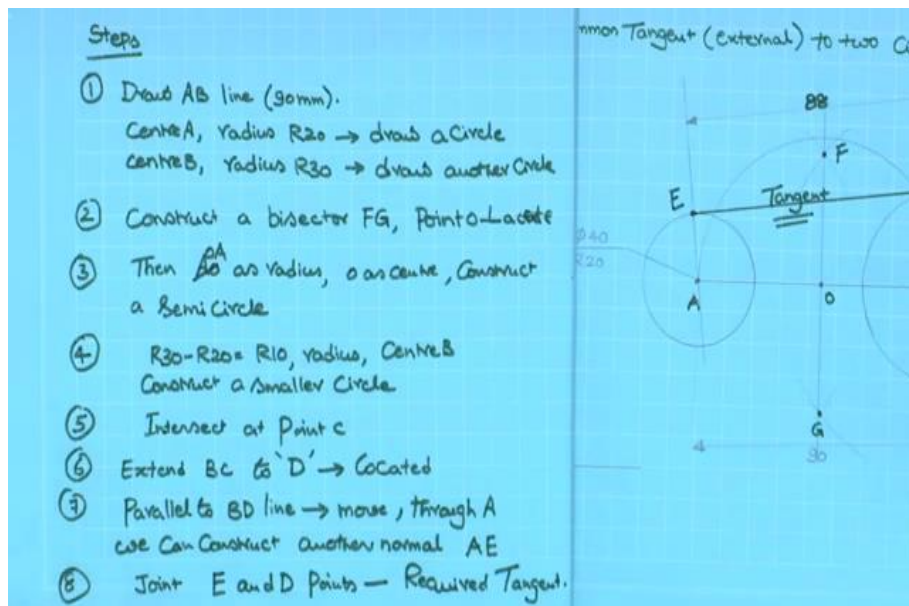 Steps
① Draw AB line (90mm).
Centre A, radius R20 → draw a Circle
Centre B, radius R30 → draw another Circle
② Construct a bisector FG, Point O - Locate
③ Then OA as radius, O as centre, Construct
a Semi Circle
④ R30-R20= R10, radius, Centre B
Construct a Smaller Circle
⑤ Intersect at Point C
⑥ Extend BC to 'D' → Located
⑦ Parallel to BD line → move, through A
we Can Construct another normal AE
⑧ Joint E and D Points — Required Tangent.
mmon Tangent (External) to two C
88
F
E
Tangent
Ø40
R20
A
O
G
90